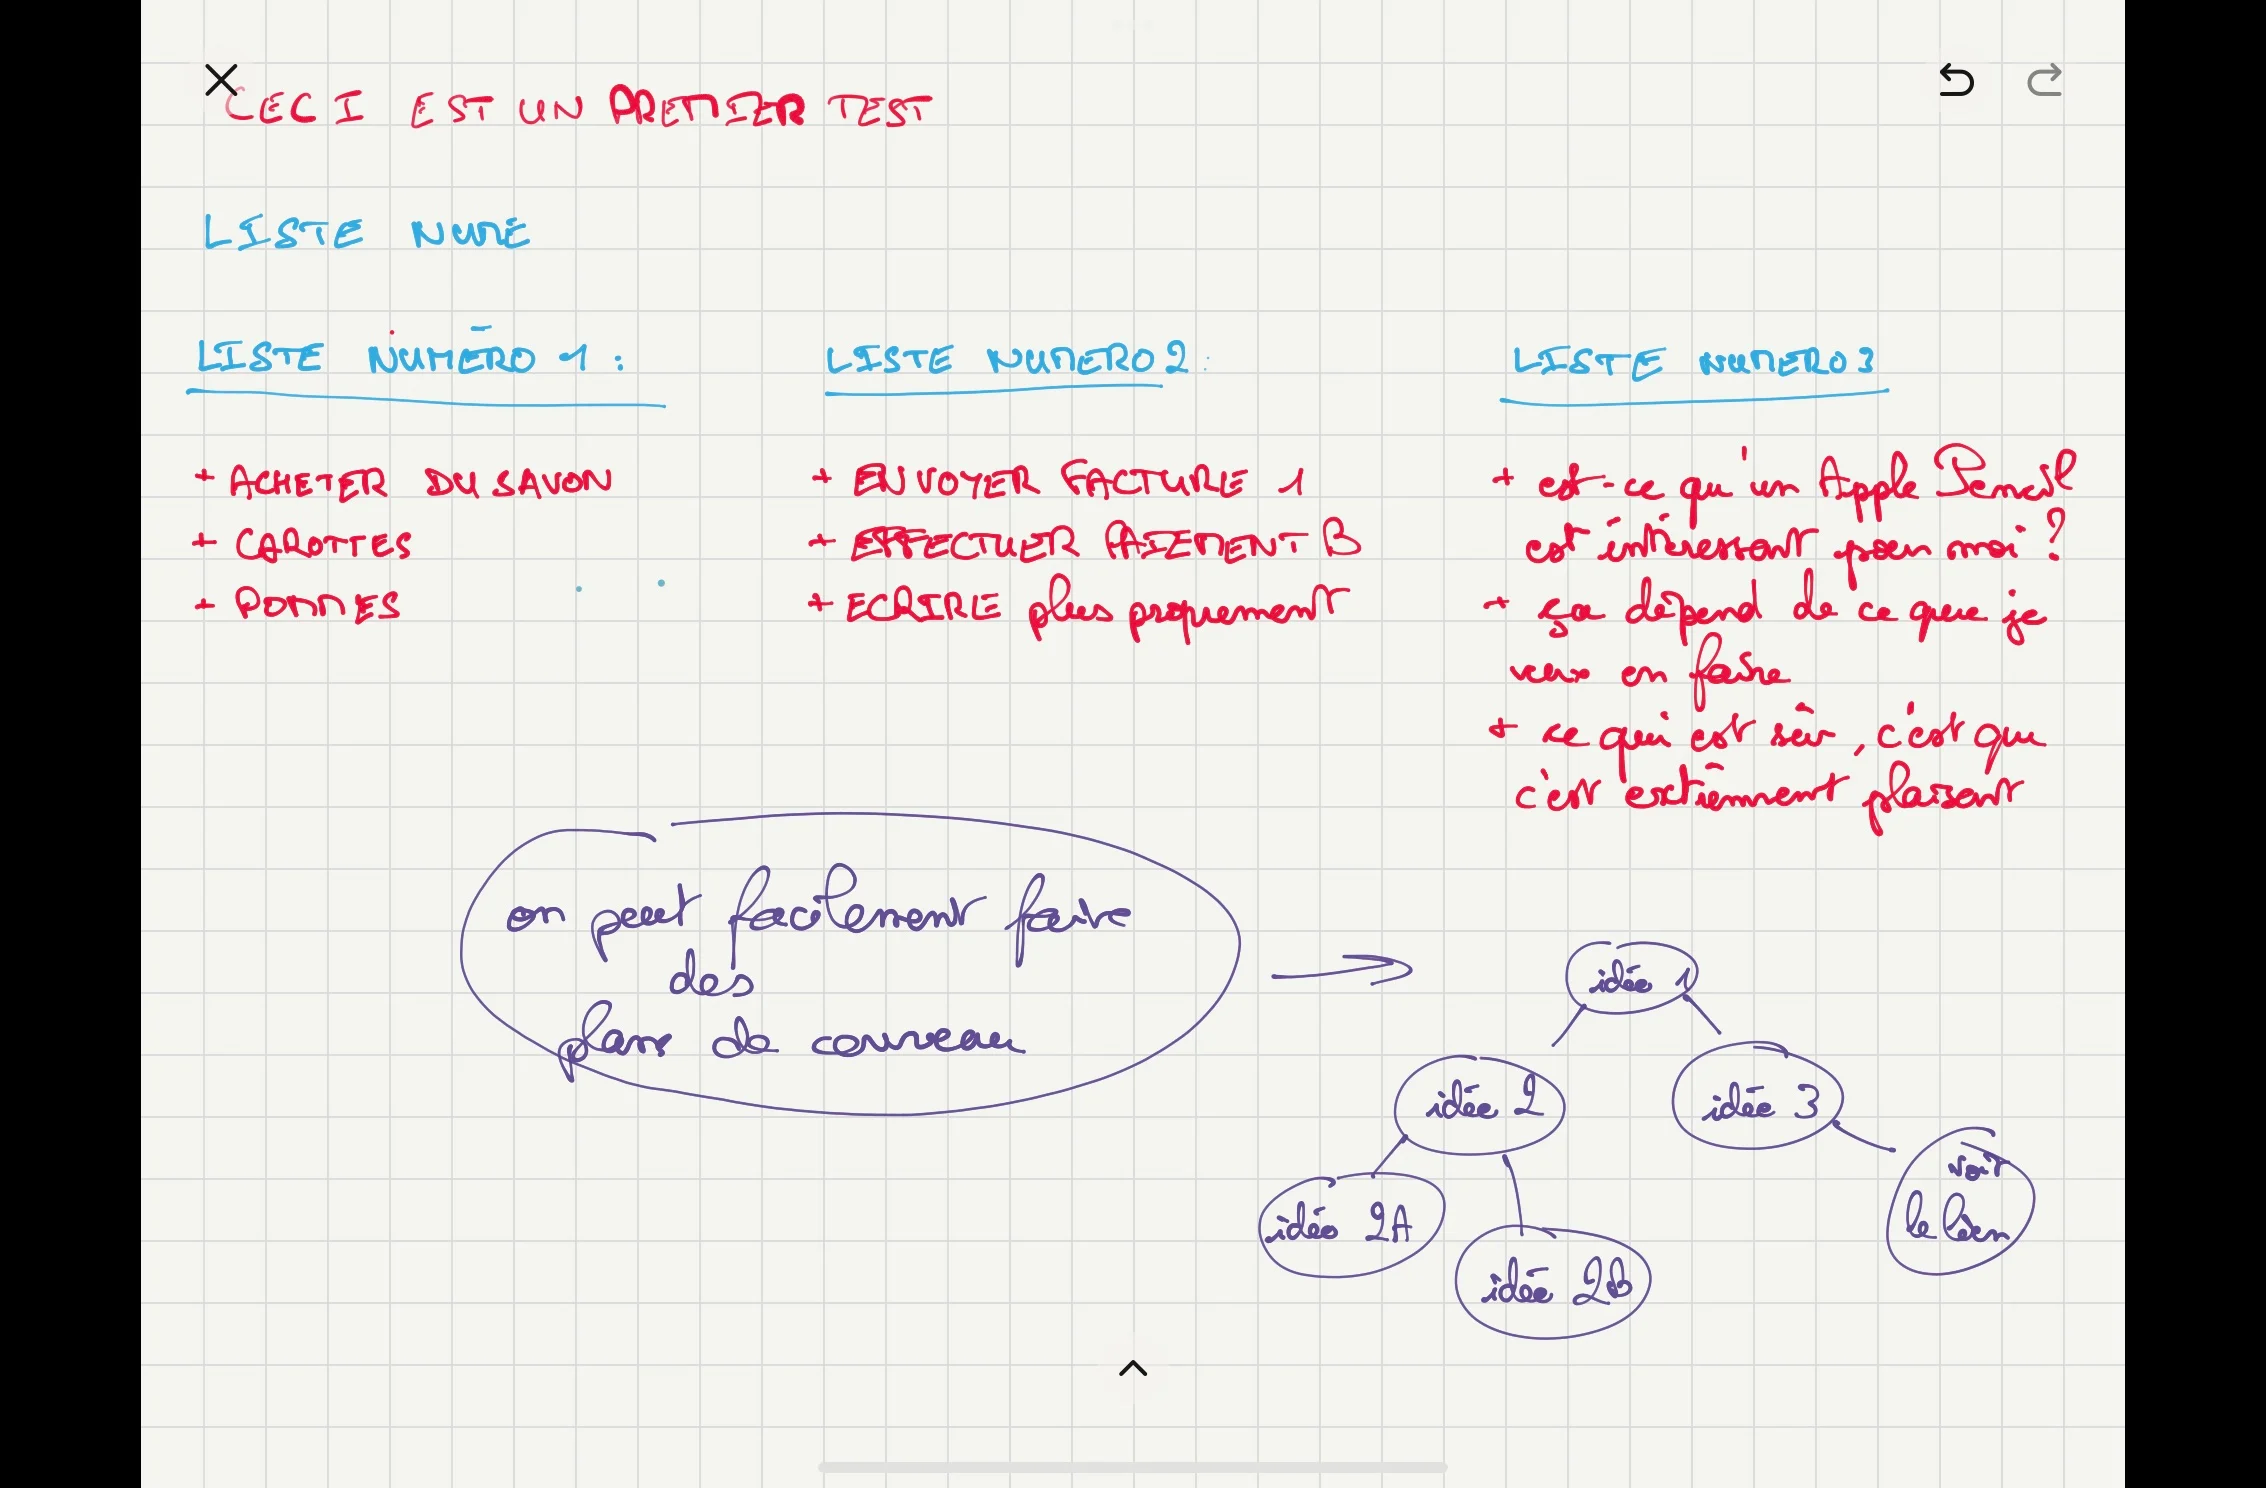 CECI EST UN PREMIER TEST
LISTE NUME
LISTE NUMÉRO 1 :
+ ACHETER DU SAVON
+ CAROTTES
+ POMMES
LISTE NUMERO 2 :
+ ENVOYER FACTURE 1
+ EFFECTUER PAIEMENT B
+ ECRIRE plus proprement
LISTE NUMERO 3
+ est-ce qu'un Apple Pencil
est intéressant pour moi ?
+ ça dépend de ce que je
veux en faire
+ ce qui est sûr, c'est que
c'est extrêmement plaisant
on peut facilement faire
des
plans de cerveau
idée 1
idée 2
idée 3
idée 2A
idée 2B
voir
le lien